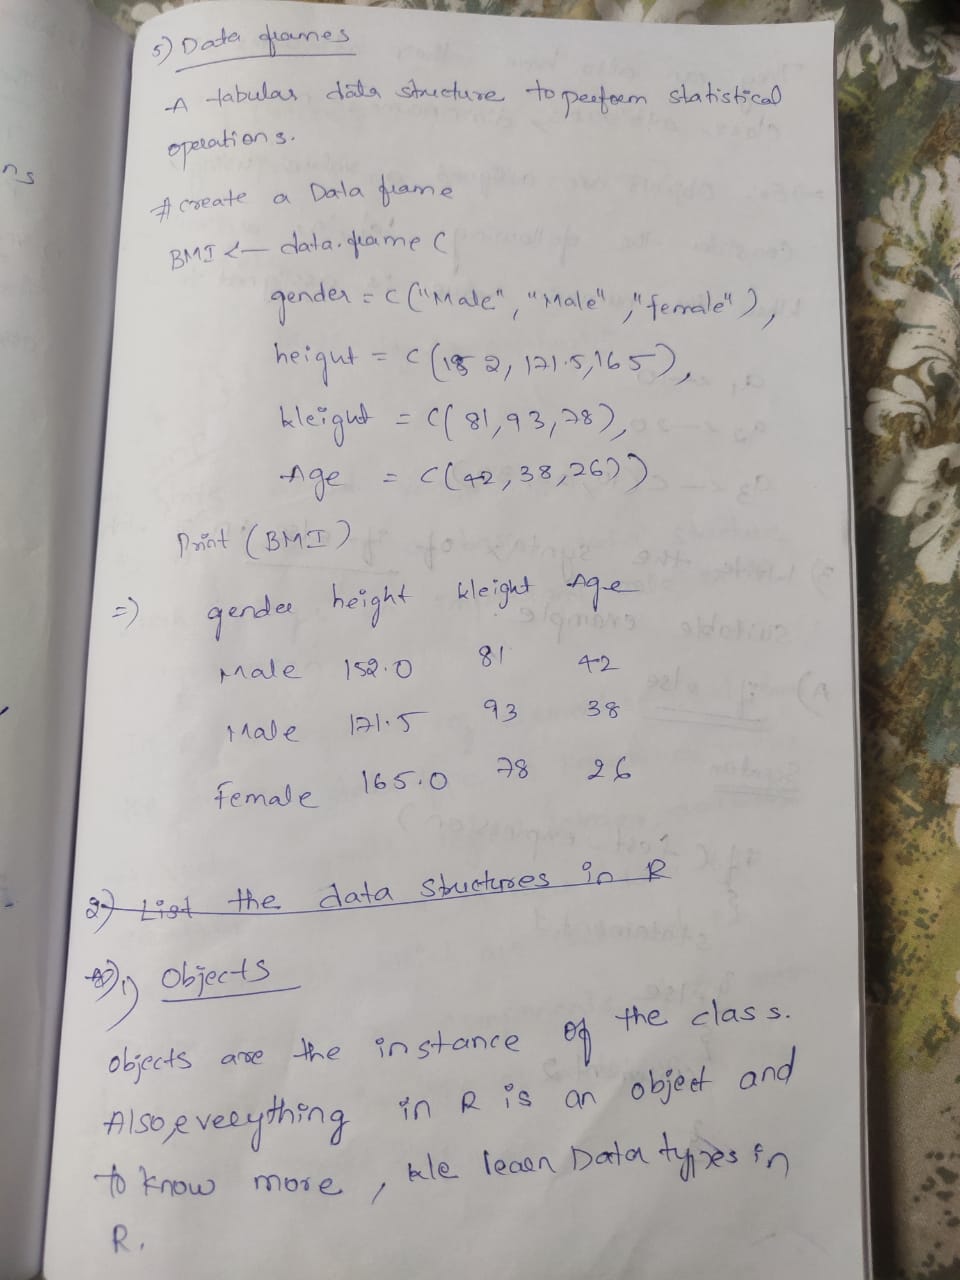 ns
5) Data frames
A tabular data structure to perform statistical
operations.
# create a Data frame
BMI <- data.frame (
gender = c ("Male", "Male", "female"),
height = c (152, 171.5, 165),
Weight = c( 81, 93, 78),
Age = c(42, 38, 26))
Print (BMI)
=> gender height Weight Age
Male 152.0 81 42
Male 171.5 93 38
Female 165.0 78 26
2) List the data structures in R
1) Objects
Objects are the instance of the class.
Also, everything in R is an object and
to know more, We learn Data types in
R.